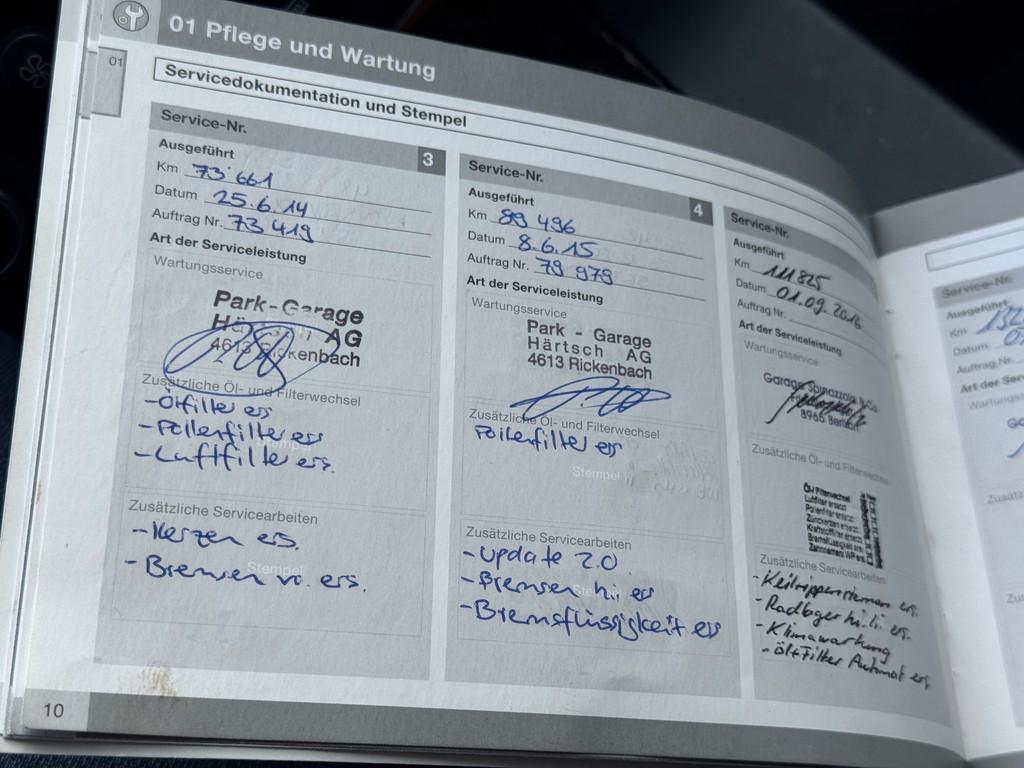 01 Pflege und Wartung
01
Servicedokumentation und Stempel
Service-Nr.
3
Ausgeführt
Km 73'661
Datum 25.6.14
Auftrag Nr. 73 419
Art der Serviceleistung
Wartungsservice
Park-Garage
Härtsch AG
4613 Rickenbach
Zusätzliche Öl- und Filterwechsel
- Ölfilter ers
- Pollenfilter ers
- Luftfilter ers.
Stempel
Zusätzliche Servicearbeiten
- Kerzen ers.
- Bremsen vo. ers.
Stempel
10
Service-Nr.
4
Ausgeführt
Km 89 496
Datum 8.6.15
Auftrag Nr. 79 979
Art der Serviceleistung
Wartungsservice
Park - Garage
Härtsch AG
4613 Rickenbach
Zusätzliche Öl- und Filterwechsel
Pollenfilter ers
Stempel
Zusätzliche Servicearbeiten
- Update 2.0
- Bremsen hi ers
- Bremsflüssigkeit ers
Service-Nr.
Ausgeführt
Km 111825
Datum 01.09.2016
Auftrag Nr.
Art der Serviceleistung
Wartungsservice
Garage
8965
Zusätzliche Öl- und Filterwechsel
Öl-/Filterwechsel
Luftfilter ersetzt
Pollenfilter ersetzt
Zündkerzen ersetzt
Kraftstofffilter ersetzt
Bremsflüssigkeit ers.
Zahnriemen/WP ers.
Zusätzliche Servicearbeiten
- Keilrippenriemen ers.
- Radlager hi. li. ers.
- Klimawartung
- Öl+Filter Automat ers.
Service-Nr.
Ausgeführt
Km
Datum
Auftrag Nr.